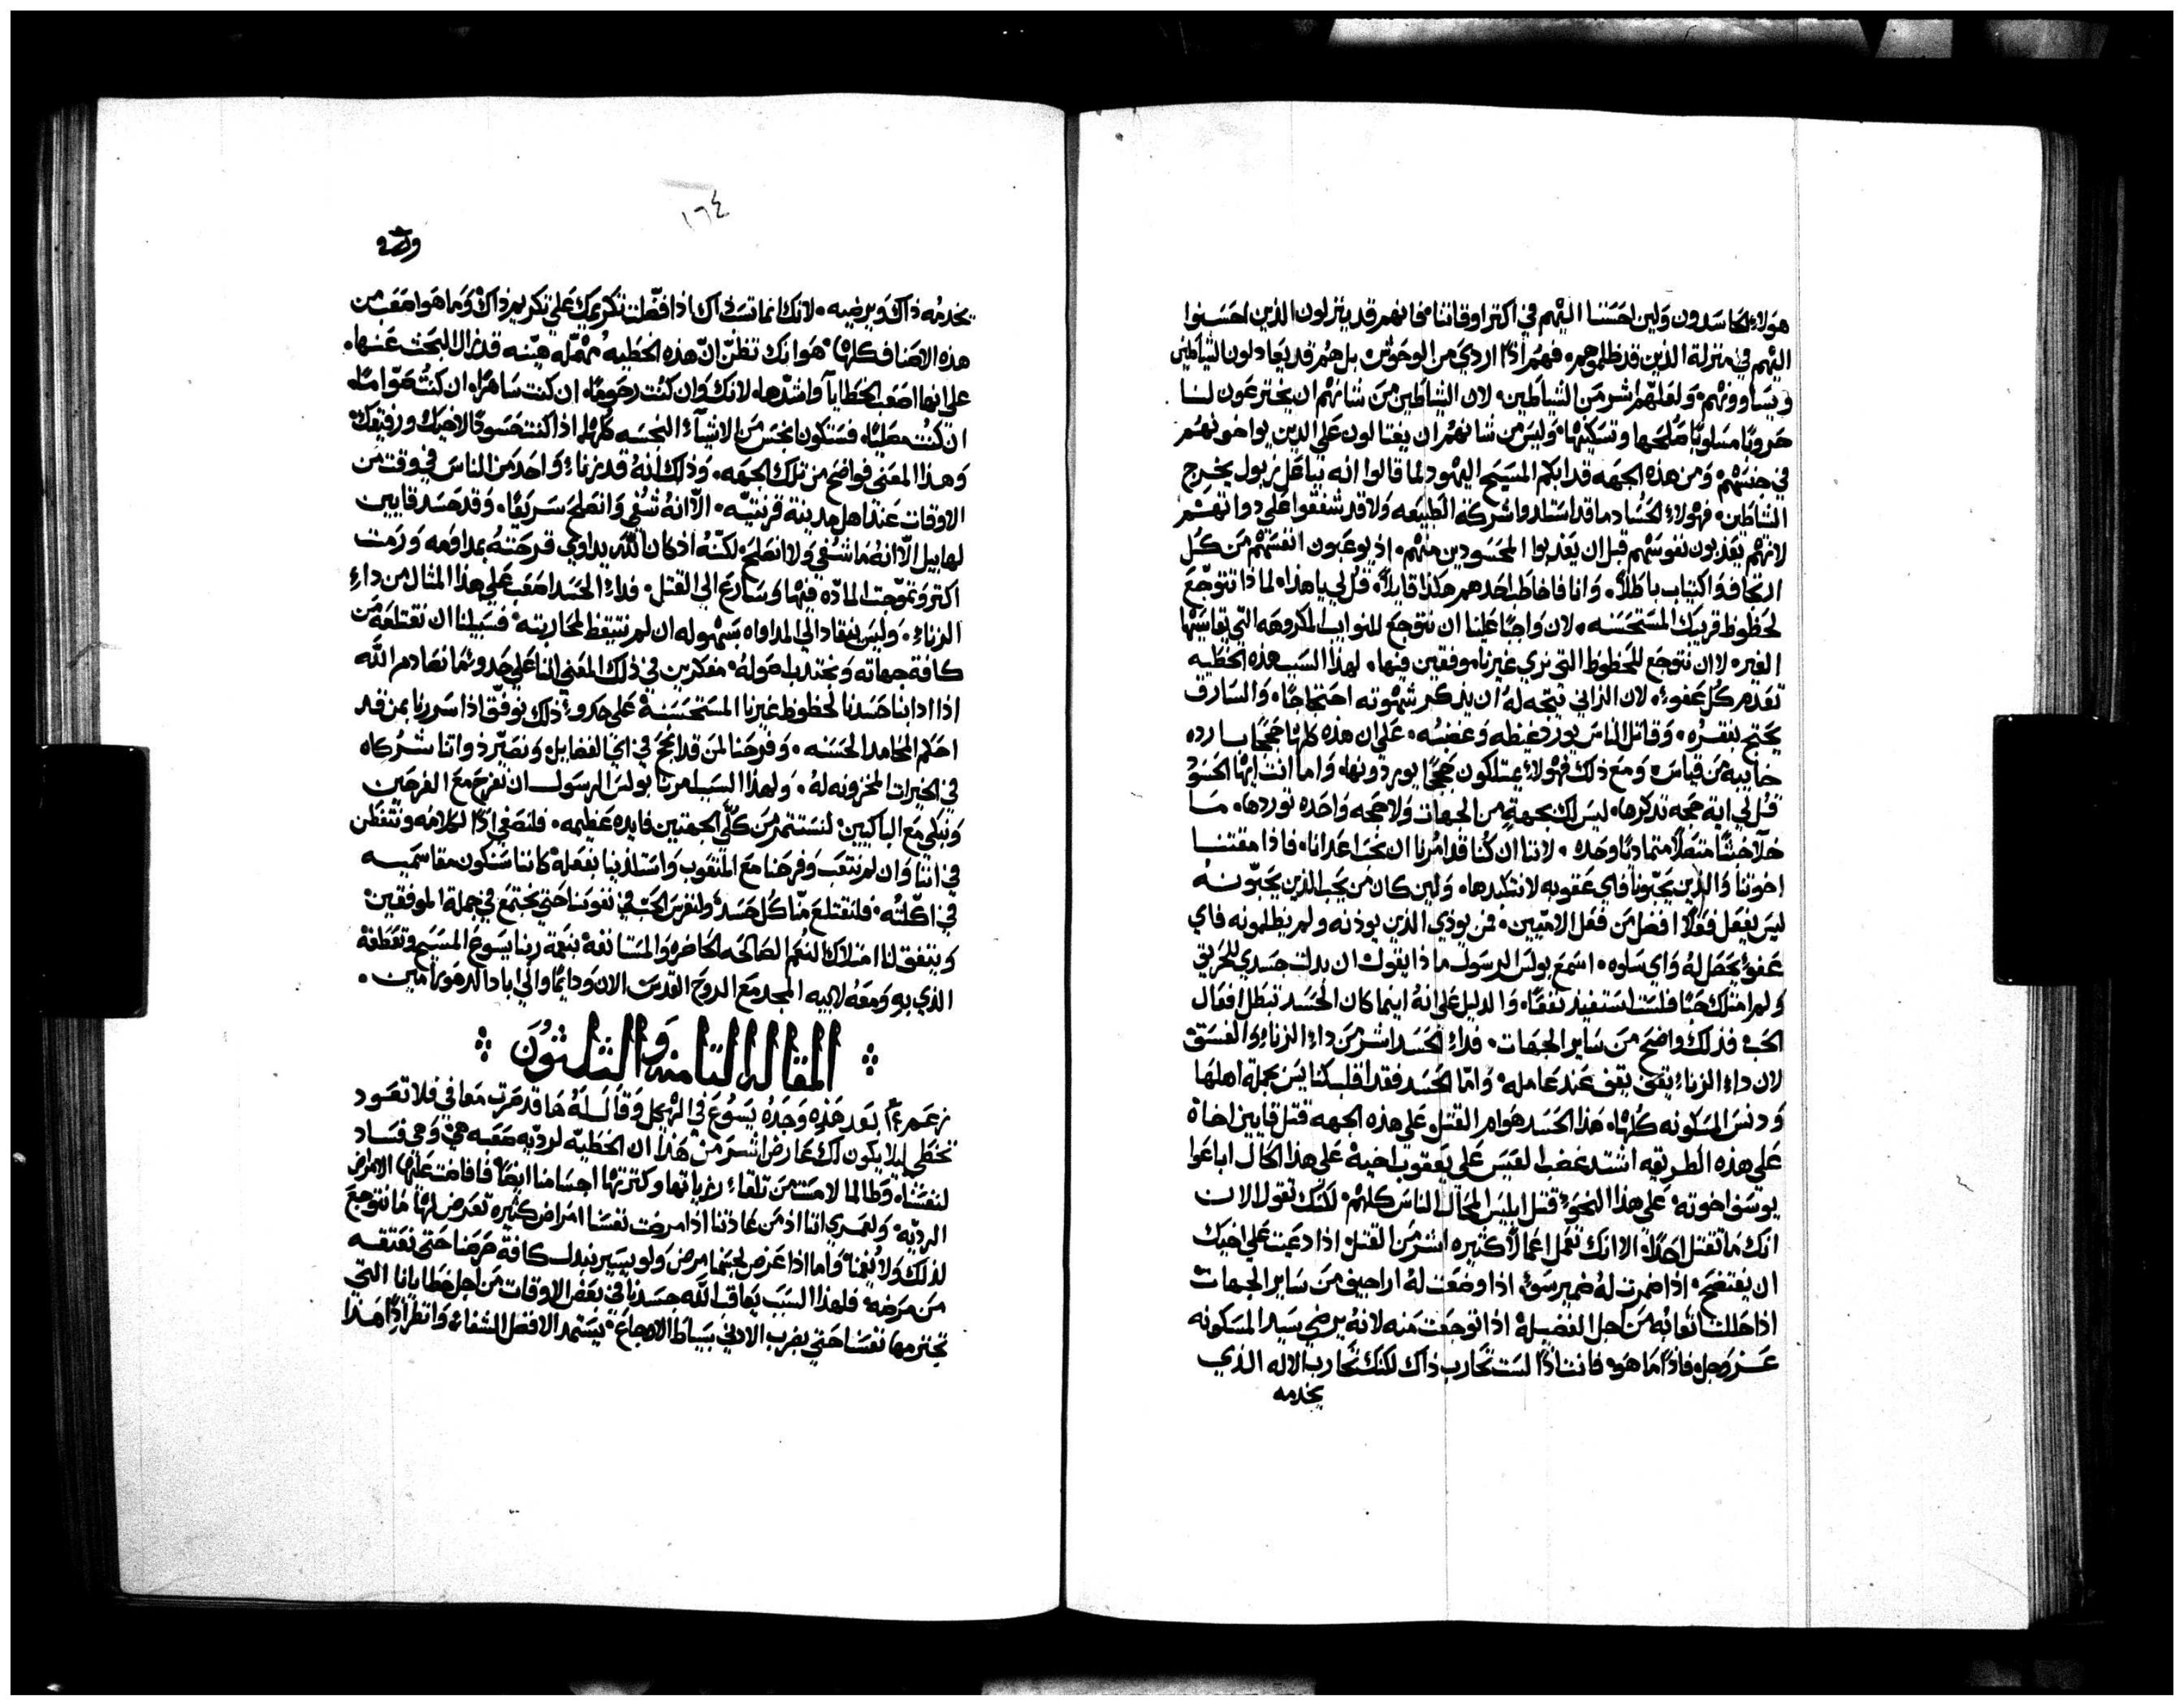 هولاء الحاسدون ولين احسنا اليهم في اكتر اوقاتنا فانهم قد ينزلون الذين احسنوا
اليهم في منزلة الذين قد ظلموهم، فهم اذًا اردي من الوحوش بل هم قد يعادلون الشياطين
ويساوونهم، ولعلهم اشر من الشياطين، لان الشياطين من شانهم ان يخترعون لنا
حروبًا مسلوبًا صلحها وتسكينها، وليس من شانهم ان يغتالون علي الدين يواخونهم
في جنسهم، ومن هذه الجهه قد ابكم المسيح اليهود لما قالوا انه بباعل زبول يخرج
الشياطين، فهولاء الحساد ما قد استلدوا شركة الطبيعه ولا قد شفقوا علي دواتهم
لانهم يعذبون نفوسهم قبل ان يعذبوا المحسودين منهم، اذ يوعبون انفسهم من كل
ارتجاف واكتياب باطلاً، وانا فاخاطب احدهم هكذا قايلاً، قل لي يا هذا، لماذا تتوجع
لحظوظ قريبك المستحسنه، لان واجبًا علينا ان نتوجع للنوايب المكروهه التي يقاسيها
الغير، لا ان نتوجع للحظوظ التي نري غيرنا موفقين فيها، لهذا السبب هذه الخطيه
تعدم كل عفو، لان الزاني يتجه له ان يذكر شهوته احتجاجًا، والسارق
يحتج بفقره، وقاتل الناس يورد غيظه وغضبه، علي ان هذه كلها حججًا بارده
خايبه من قياس، ومع ذلك فهولاء يمتلكون حججًا يوردونها، واما انت ايها الحسود
قل لي اية حجه تذكرها، ليس لك بجهةٍ من الجهات ولا حجه واحده توردها، ما
خلا خبثًا متصلاً متماديًا وحده، لاننا ان كنا قد امرنا ان نحب اعدانا، فاذا مقتنا
اخوتنا والذين يحبونا فاي عقوبه لا نتكبدها، ولين كان من يحب الذين يحبونه
ليس يفعل فعلاً افضل من فعل الاممين، فمن يوذي الذين يوذنه ولم يظلمونه فاي
عفو يحصل له واي سلوه، اسمع بولس الرسول ماذا يقول ان بدلت جسدي للحريق
ولم امتلك حبًا فلست استفيد نفعًا، والدليل علي انه اينما كان الحسد تبطل افعال
الحب، فذلك واضح من ساير الجهات، فداء الحسد اشر من داء الزناء والفسق
لان داء الزناء يقف عند عامله، واما الحسد فقد اقلب كنايس بجملة اهلها
ودنس المسكونه كلها، هذا الحسد هو ام القتل، علي هذه الجهه قتل قايين اخاه
علي هذه الطريقه اشتد غضب العيس علي يعقوب اخيه، علي هذا الحال اباعوا
يوسف اخوته، علي هذا النحو قتل ابليس المحال الناس كلهم، لكنك تقول الان
انك ما تقتل احدًا، الا انك تعمل اعمالاً كتيره اشر من القتل، اذا دعيت علي اخيك
ان يفتضح، اذا ضمرت له ضمير سو، اذا وضعت له اراجيف من ساير الجهات
اذا حللت اتعابه من اجل الفضيلة، اذا توجعت منه لانه يرضي سيد المسكونه
عز وجل، فاذًا ما هو، فانت اذًا لست تحارب ذاك لكنك تحارب الاله الذي
يخدمه
١٦٤
يخدمه ذاك ويرضيه، لانك انما تسي ذاك اذا فضلت تكريمك علي تكريم ذاك، وما هو اصعب من
هذه الاصناف كلها، هو انك تظن ان هذه الخطيه مهمله هينه قد زال البحث عنها،
علي انها اصعب الخطايا واشدها، لانك وان كنت رحومًا، ان كنت ساهرًا، ان كنت صوامًا،
ان كنت مصليًا، فستكون نجس من الاشيآء النجسه كلها، اذا كنت حسودًا لاخيك ورفيقك
وهذا المعني فواضح من تلك الجهه، وذلك انه قد زناء واحد من الناس في وقت من
الاوقات عند اهل مدينة قرنتيه، الا انه شفي وانصلح سريعًا، وقد حسد قايين
لهابيل الا انه ما شفي ولا انصلح، لكنه اذ كان الله يداوي قرحته بمداومه ورمت
اكتر وتموجت المادة فيها، وسارع الي القتل، فداء الحسد اصعب علي هذا المثال من داء
الزناء، وليس ينقاد الي المداواه بسهوله ان لم نتيقظ لمحاربته، فسبيلنا ان نقتلعه من
كافة جهاته ونجتذب اصوله، مفكرين في ذلك المعني اننا علي حدو ما نصادم الله
اذا اذابنا حسدنا لحظوظ غيرنا المستحسنة، علي حدو ذلك نوفق اذا سررنا بمن قد
احكم المحامد الحسنه، وفرحنا لمن قد نجح في اي الفضايل، ونصير ذواتنا شركاه
في الخيرات المخزونه له، ولهذا السبب امرنا بولس الرسول ان نفرح مع الفرحين
ونبكي مع الباكيين، لنستثمر من كلتي الجهتين فايده عظيمه، فلنصغي اذًا لكلامه ونتفطن
في اننا وان لم نتعب وفرحنا مع المتعوب واستلذينا بفعله، كاننا سنكون مقاسميه
في اكلته، فلنقتلع منا كل حسد، ولنغرس الحب في نفوسنا حتي نجتمع في جملة الموفقين
ويتفق لنا امتلاك النعم الصالحه الحاضره والمستانفه بنعمة ربنا يسوع المسيح وتعطفه
الذي به ومعه لابيه المجد مع الروح القدس الان ودايمًا والي اباد الدهور امين،
المقاله الثامنه والثلثون
بعد هذه وجده يسوع في الهيكل وقال له ها قد صرت معافي فلا تعود
تخطي ليلا يكون لك عارض اشر من هذا ان الخطيه لرديه صعبه هي، وهي فساد
لنفسنا، وطالما لامست من تلقاء رغباتها وكترتها اجسامنا ايضًا، فافاضت عليها الامراض
الرديه، ولعمري اننا اذ من عادتنا اذا مرضت نفسنا امراض كثيره تعرض لها، ما نتوجع
لذلك ولا يغمنا، واما اذا عرض لجسمنا مرض ولو يسير نبدل كافة حرصنا حتي نعتقه
من مرضه، فلهذا السبب يعاقب الله جسدنا في بعض الاوقات من اجل خطايانا التي
تجترمها نفسنا حتي بضرب الادني بسياط الاوجاع، يستمد الافضل الشفاء، وانظر اذًا هذا